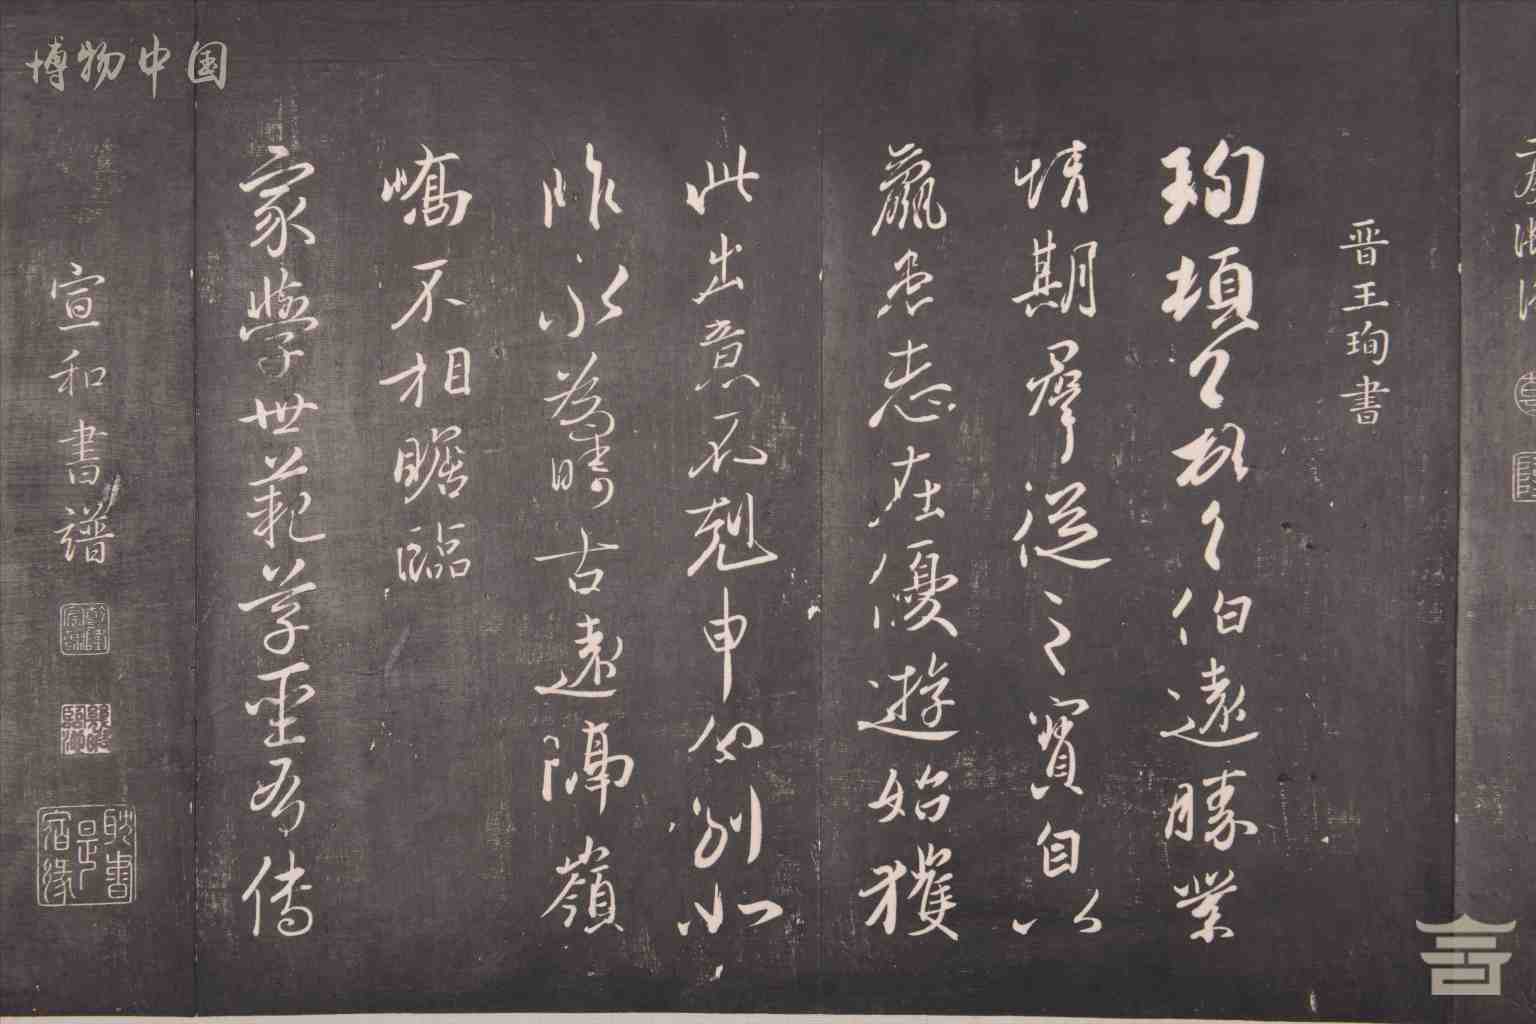 晋王珣書
珣頓首頓首伯遠勝業
情期羣從之寶自以
羸患志在優遊始獲
此出意不剋申分別如
昨永為疇古遠隔嶺
嶠不相瞻臨
家學世範草聖有傳
宣和書譜
耽書是宿緣
博物中国